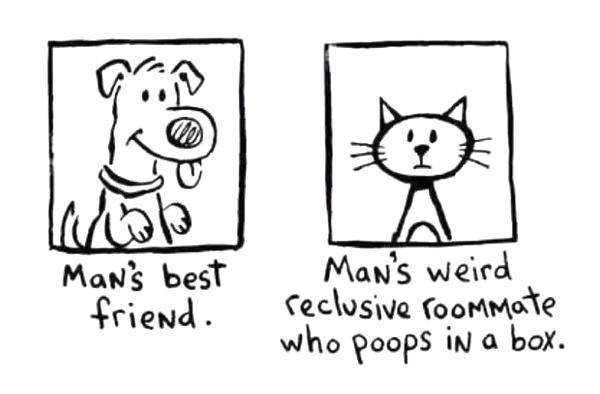 Man's best
friend.
Man's weird
reclusive roommate
who poops in a box.